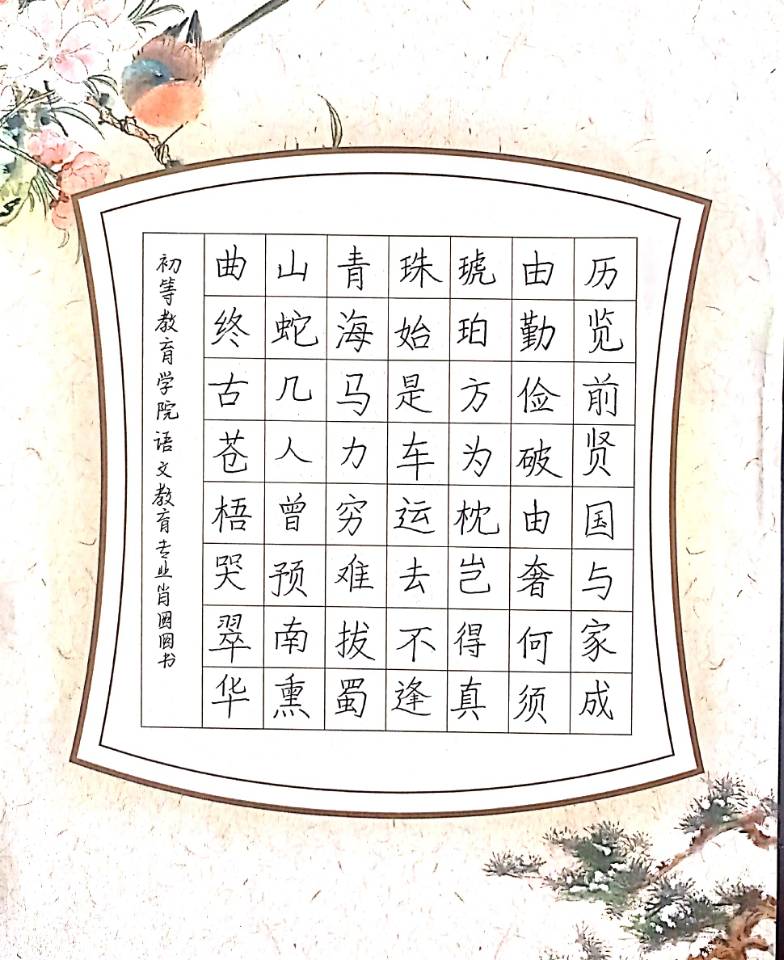 历览前贤国与家成
由勤俭破由奢何须
琥珀方为枕岂得真
珠始是车运去不逢
青海马力穷难拔蜀
山蛇几人曾预南熏
曲终古苍梧哭翠华
初等教育学院语文教育专业肖圆圆书